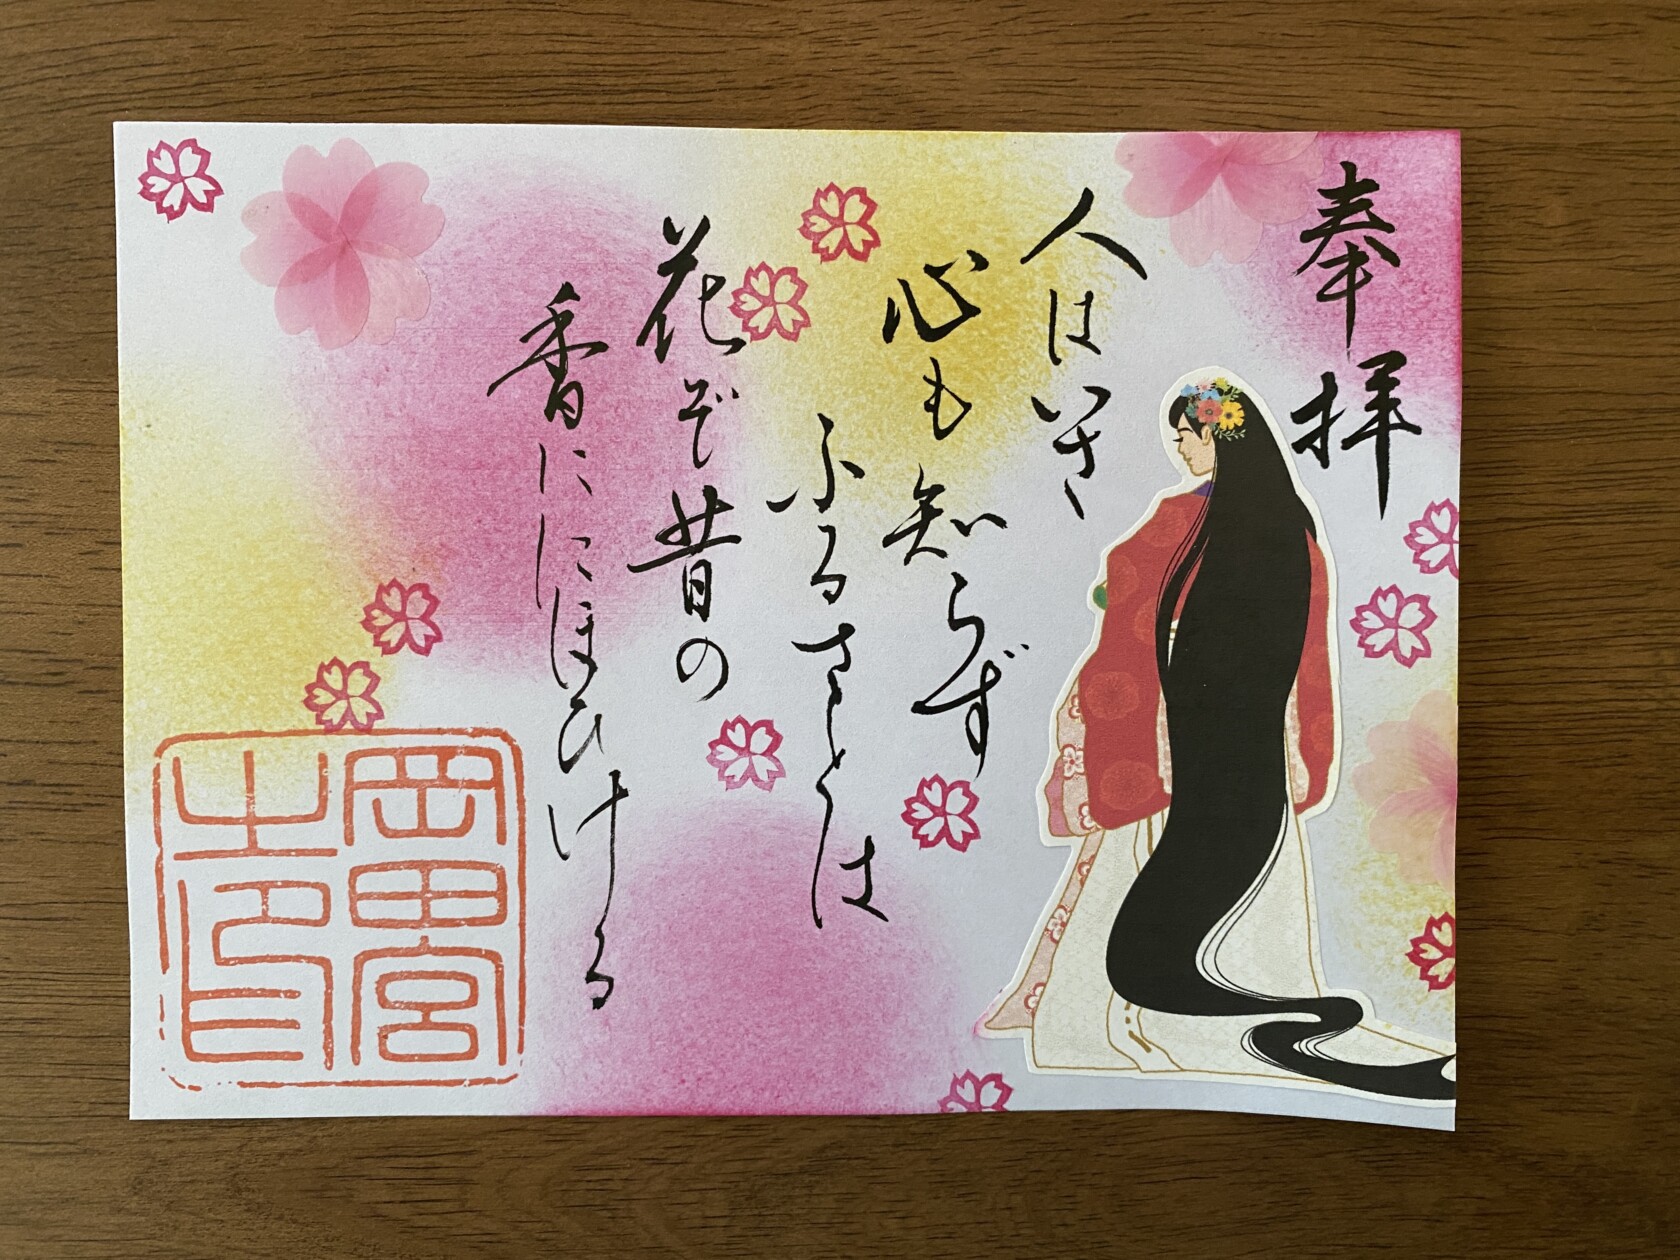 奉拝
人はいさ
心も知らず
ふるさとは
花ぞ昔の
香ににほひける
岡田宮
之印